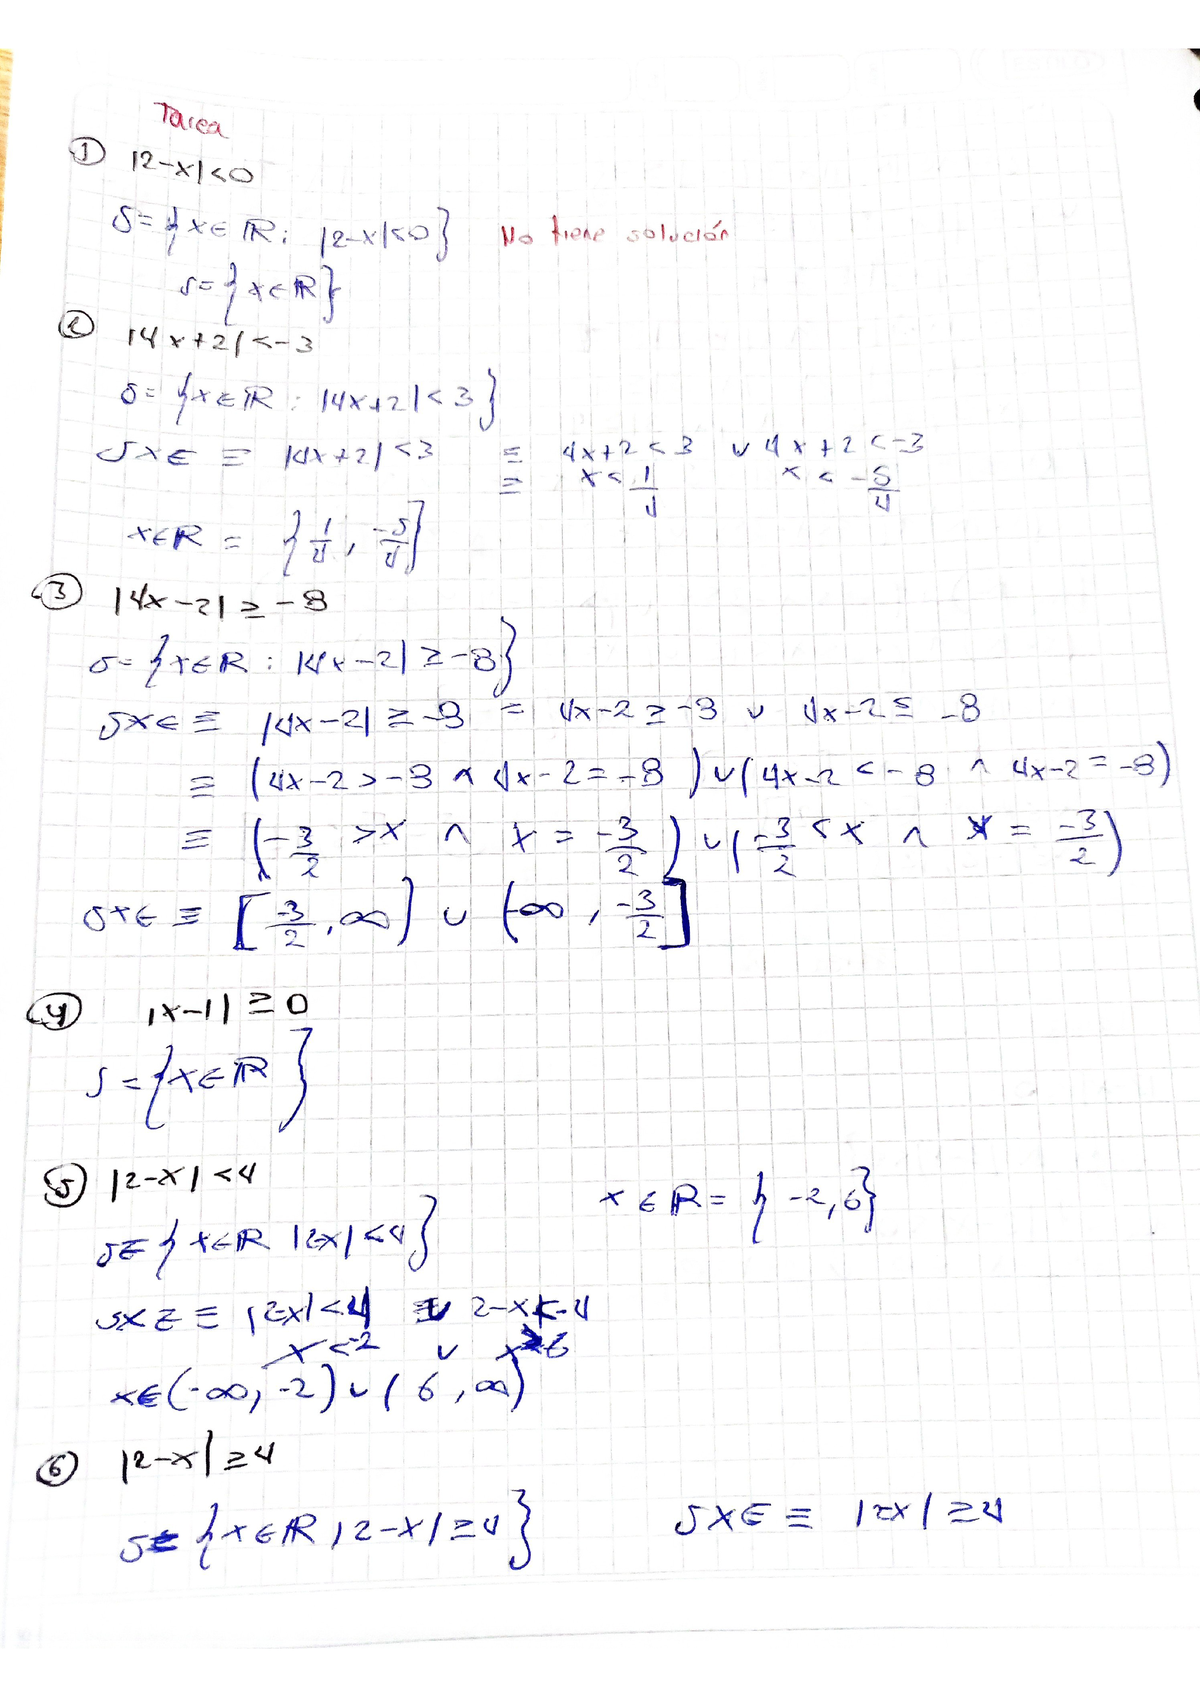 Tarea
① |2-x|<0
S={x∈ℝ: |2-x|<0} No tiene solución
S={x∈ℝ}
② |4x+2|<-3
S={x∈ℝ: |4x+2|<3}
Sx∈ ≡ |4x+2|<3 ≡ 4x+2<3 ∨ 4x+2<-3
≡ x<1/4 x<-5/4
x∈ℝ = {1/4, -5/4}
③ |4x-2|≥-8
S={x∈ℝ: |4x-2|≥-8}
Sx∈ ≡ |4x-2|≥-8 = 4x-2≥-8 ∨ 4x-2≤-8
≡ (4x-2>-8 ∧ 4x-2=-8) ∨ (4x-2<-8 ∧ 4x-2=-8)
≡ (-3/2 >x ∧ x=-3/2) ∨ (-3/2 <x ∧ x=-3/2)
Sx∈ ≡ [-3/2, ∞) ∪ (-∞, -3/2]
④ |x-1|≥0
S={x∈ℝ}
⑤ |2-x|<4 x∈ℝ={-2,6}
S={x∈ℝ |2-x|<4}
Sx∈ ≡ |2-x|<4 ∨ 2-x<-4
x<-2 ∨ x>6
x∈(-∞, -2)∪(6, ∞)
⑥ |2-x|≥4
S={x∈ℝ |2-x|≥4} Sx∈ ≡ |2-x|≥4